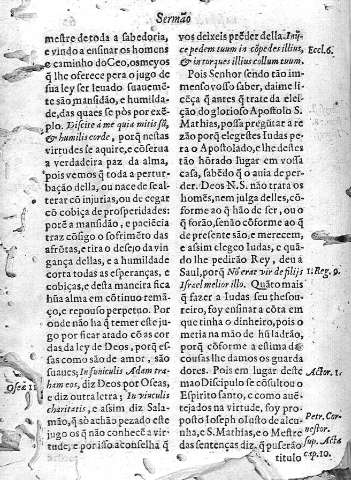 Sermão
mestre de toda a sabedoria,
e vindo a ensinar os homens
e caminho do Ceo, os meyos
q̃ lhe oferece pera o jugo de
sua ley ser leuado suauemẽ-
te são mansidão, e humilda-
de, das quaes se pòs por exẽ-
plo. Discite à me quia mitis sũ,
& humilis corde, porq̃ nestas
virtudes se aquire, e cõserua
a verdadeira paz da alma,
pois vemos q̃ toda a pertur-
bação della, ou nace de se al-
terar cõ injurias, ou de cegar
cõ cobiça de prosperidades:
porẽ a mansidão, e paciẽcia
traz cõsigo o sofrimẽto das
afrõtas, e tira o desejo da vin-
gança dellas, e a humildade
corta todas as esperanças, e
cobiças, e desta maneira fica
hũa alma em cõtinuo remã-
ço, e repouso perpetuo. Por
onde não ha q̃ temer este ju-
go por ficar atado cõ as cor-
das da ley de Deos, porq̃ es-
sas como são de amor, são
suaues; In funiculis Adam tra-
ham eos, diz Deos por Oseas,
e diz outra letra; In vinculis
charitatis, e assim diz Sala-
mão, q̃ só achão pezado este
jugo os q̃ não conhecẽ a vir-
tude, e por isso aconselha q̃
Oseæ 11
vos deixeis prẽder della. Inij-
ce pedem tuum in cõpedes illius,
& in torques illius collum tuum.
Pois Senhor sendo tão im-
menso vosso saber, daime li-
cẽça q̃ antes q̃ trate da elei-
ção do glorioso Apostolo S.
Mathias, possa pregũtar a re-
zão porq̃ elegestes Iudas pe-
ra o Apostolado, e lhe destes
tão hõrado lugar em vossa
casa, sabẽdo q̃ o auia de per-
der. Deos N. S. não trata os
homẽs, nem julga delles, cõ-
forme ao q̃ hão de ser, ou o
q̃ forão, senão cõforme ao q̃
de presente são, e merecem,
e assim elegeo Iudas, e quã-
do lhe pedirão Rey, deu a
Saul, porq̃ Nõ erat vir de filijs
Israel melior illo. Quãto mais
q̃ fazer a Iudas seu thesou-
reiro, foy ensinar a cõta em
que tinha o dinheiro, pois o
metia na mão de hũ ladrão,
porq̃ cõforme a estima dẽ
cousas lhe damos os guarda
dores. Pois em lugar deste
mao Discipulo se cõsultou o
Espirito santo, e como auẽ-
tejados na virtude, foy pro-
posto Ioseph o Iusto de alcu-
nha, e S. Mathias, e o Mestre
das sentenças diz, q̃ puserão
titulo
Eccl. 6.
1. Reg. 9.
Actor. 1.
Petr. Cor
nestor.
sup. Acta
cap. 10.